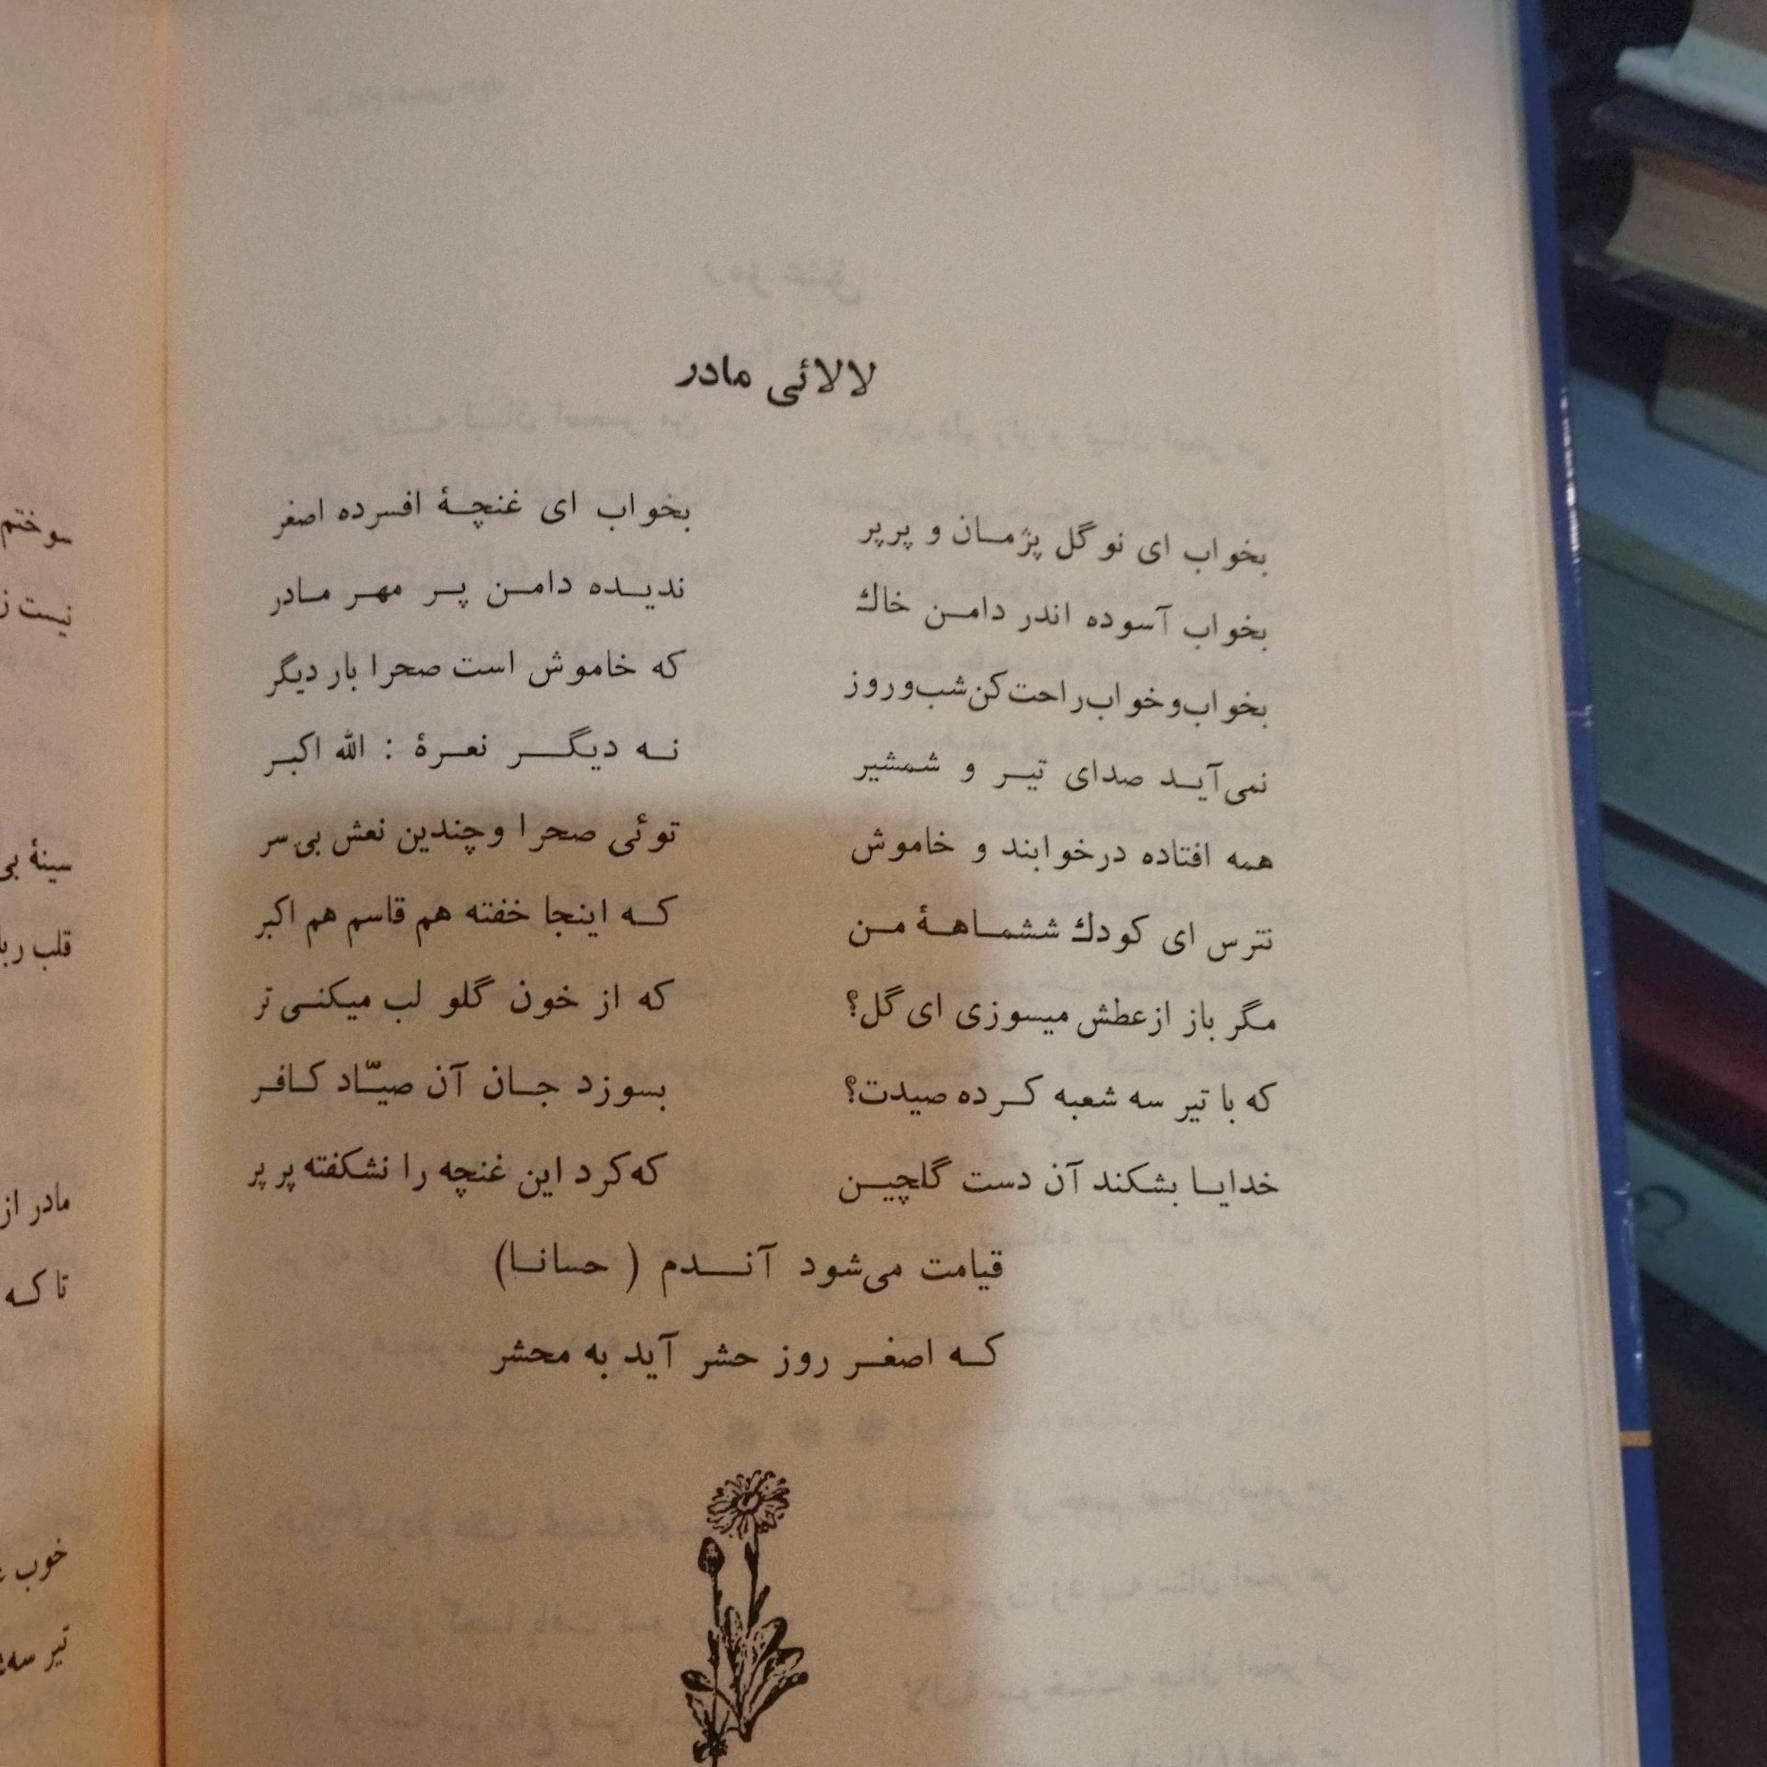 لالائی مادر
بخواب ای نو گل پژمان و پرپر بخواب ای غنچهٔ افسرده اصغر
بخواب آسوده اندر دامن خاك ندیده دامن پر مهر مادر
بخواب و خواب راحت کن شب و روز که خاموش است صحرا بار دیگر
نمی‌آید صدای تیر و شمشیر نه دیگر نعرهٔ : الله اکبر
همه افتاده در خوابند و خاموش توئی صحرا و چندین نعش بی‌سر
نترس ای کودك ششماههٔ من که اینجا خفته هم قاسم هم اکبر
مگر باز از عطش میسوزی ای گل؟ که از خون گلو لب میکنی تر
که با تیر سه شعبه کرده صیدت؟ بسوزد جان آن صیّاد کافر
خدایا بشکند آن دست گلچین که کرد این غنچه را نشکفته پر پر
قیامت می‌شود آندم ( حسانا)
که اصغر روز حشر آید به محشر
سوختم
نیست
سینهٔ
قلب
مادر از
تا که
خوب
تیر